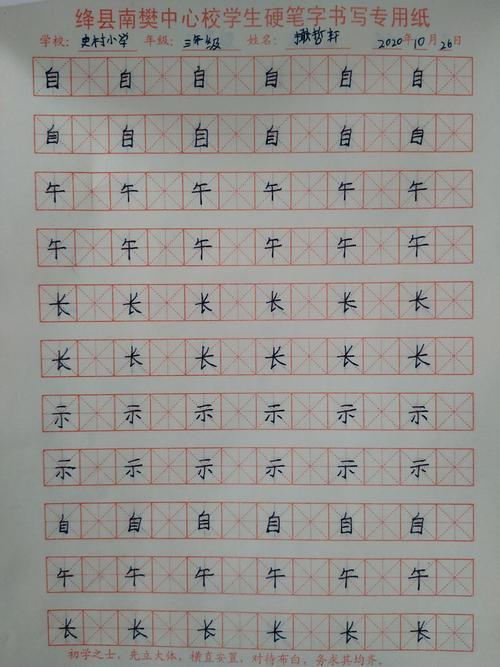 绛县南樊中心校学生硬笔字书写专用纸
学校：史村小学 年级：三年级 姓名： 哲轩 2020年10月26日
自 自 自 自 自 自
自 自 自 自 自 自
午 午 午 午 午 午
午 午 午 午 午 午
长 长 长 长 长 长
长 长 长 长 长 长
示 示 示 示 示 示
示 示 示 示 示 示
自 自 自 自 自 自
午 午 午 午 午 午
长 长 长 长 长 长
初学之士，先立大体，横直安置，对待布白，务求其均齐。